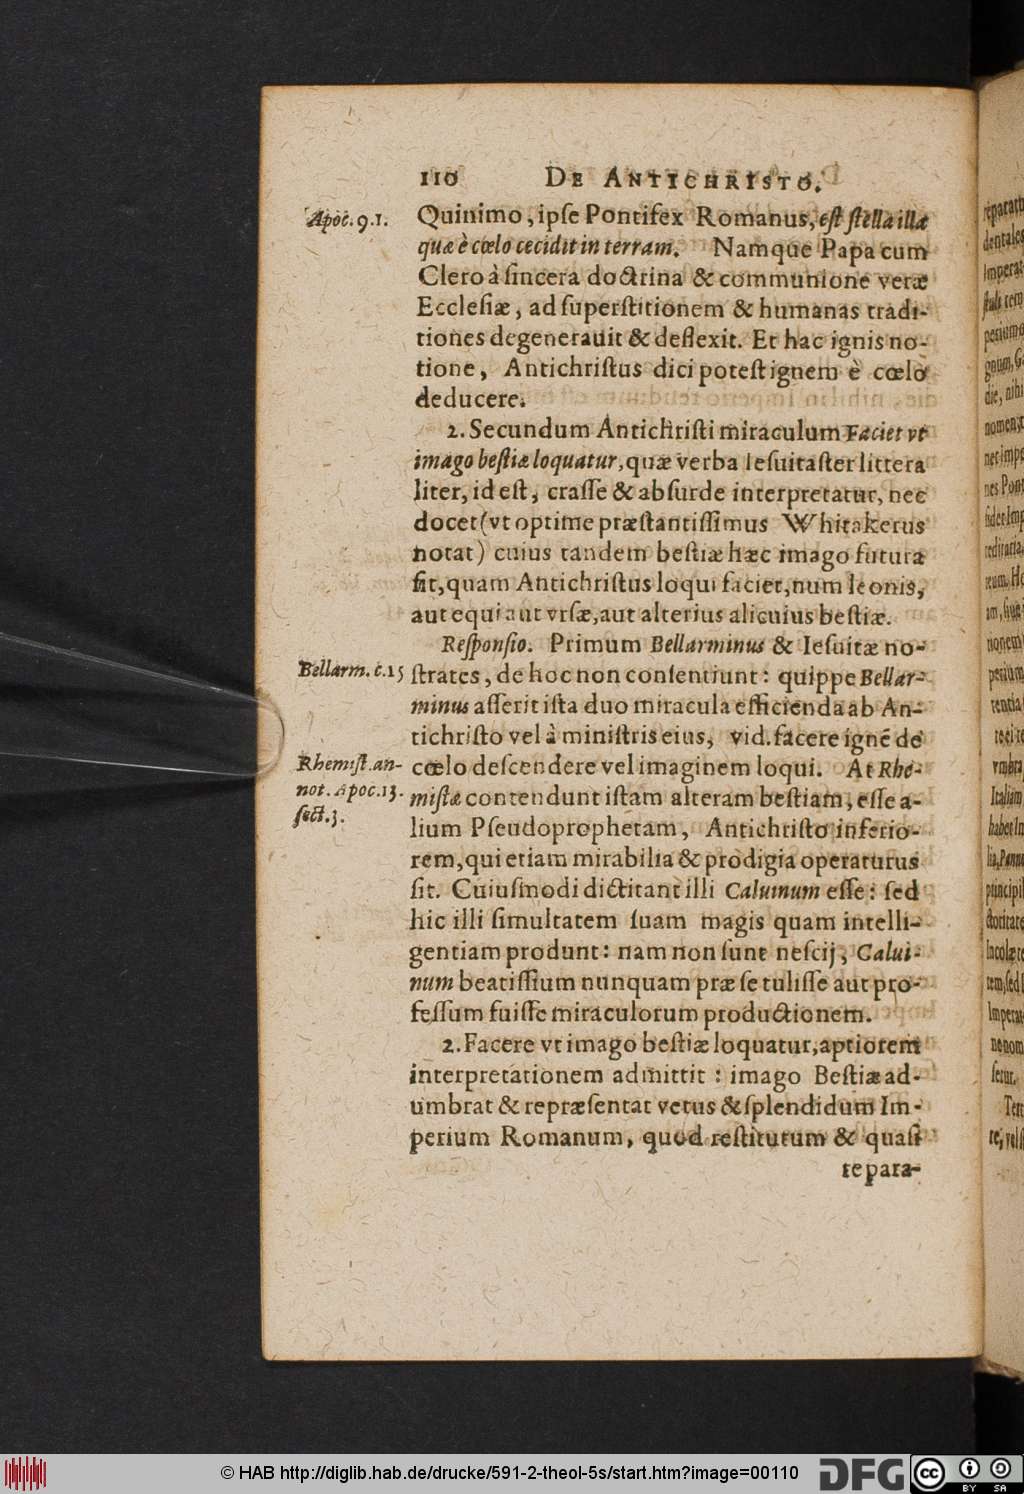 110 DE ANTICHRISTO.
Apoc. 9. 1.
Quinimo, ipſe Pontifex Romanus, eſt ſtella illa
quæ è cœlo cecidit in terram. Namque Papa cum
Clero à ſincera doctrina & communione veræ
Eccleſiæ, ad ſuperſtitionem & humanas tradi-
tiones degenerauit & deflexit. Et hac ignis no-
tione, Antichriſtus dici poteſt ignem è cœlo
deducere.
2. Secundum Antichriſti miraculum Faciet vt
imago beſtiæ loquatur, quæ verba Ieſuitaſter littera
liter, id eſt, craſſe & abſurde interpretatur, nec
docet (vt optime præſtantiſſimus Whitakerus
notat) cuius tandem beſtiæ hæc imago futura
ſit, quam Antichriſtus loqui faciet, num leonis,
aut equi aut vrſæ, aut alterius alicuius beſtiæ.
Reſponſio. Primum Bellarminus & Ieſuitæ no-
Bellarm. c. 15
ſtrates, de hoc non conſentiunt: quippe Bellar-
minus aſſerit iſta duo miracula efficienda ab An-
tichriſto vel à miniſtris eius, vid. facere ignē de
Rhemiſt. an-
not. Apoc. 13.
ſect. 3.
cœlo deſcendere vel imaginem loqui. At Rhe-
miſtæ contendunt iſtam alteram beſtiam, eſſe a-
lium Pſeudoprophetam, Antichriſto inferio-
rem, qui etiam mirabilia & prodigia operaturus
ſit. Cuiuſmodi dictitant illi Caluinum eſſe: ſed
hic illi ſimultatem ſuam magis quam intelli-
gentiam produnt: nam non ſunt neſcij, Calui-
num beatiſſium nunquam præ ſe tuliſſe aut pro-
feſſum fuiſſe miraculorum productionem.
2. Facere vt imago beſtiæ loquatur, aptiorem
interpretationem admittit: imago Beſtiæ ad-
umbrat & repræſentat vetus & ſplendidum Im-
perium Romanum, quod reſtitutum & quaſi
repara-
© HAB http://diglib.hab.de/drucke/591-2-theol-5s/start.htm?image=00110
DFG
CC BY SA